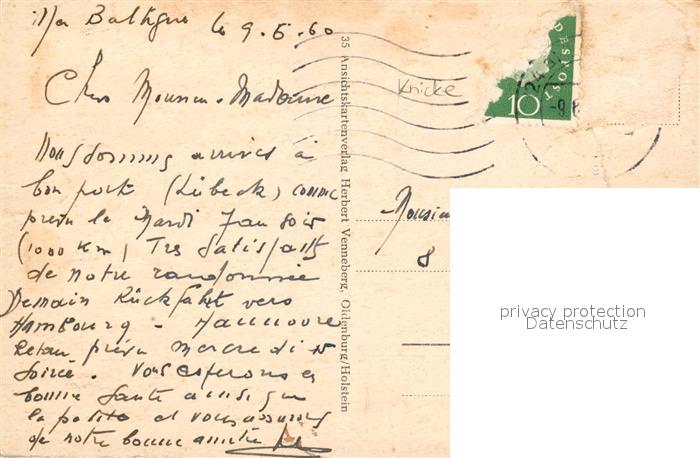 le 9.5.60
Chers Monsieur. Madame
Nous sommes arrivés à
bon port (Lübeck) comme
prévu le Mardi 7 au soir
(1000 Km) Très satisfaits
de notre randonnée
Demain Rückfahrt vers
Hambourg - Hannovre
Retour prévu Mercredi
soirée. Vous espérons en
bonne santé ainsi que
la petite et vous assurons
de notre bonne amitié
35 Ansichtskartenverlag Herbert Venneberg, Oldenburg/Holstein
Knicke
10
Monsieu
8
privacy protection
Datenschutz